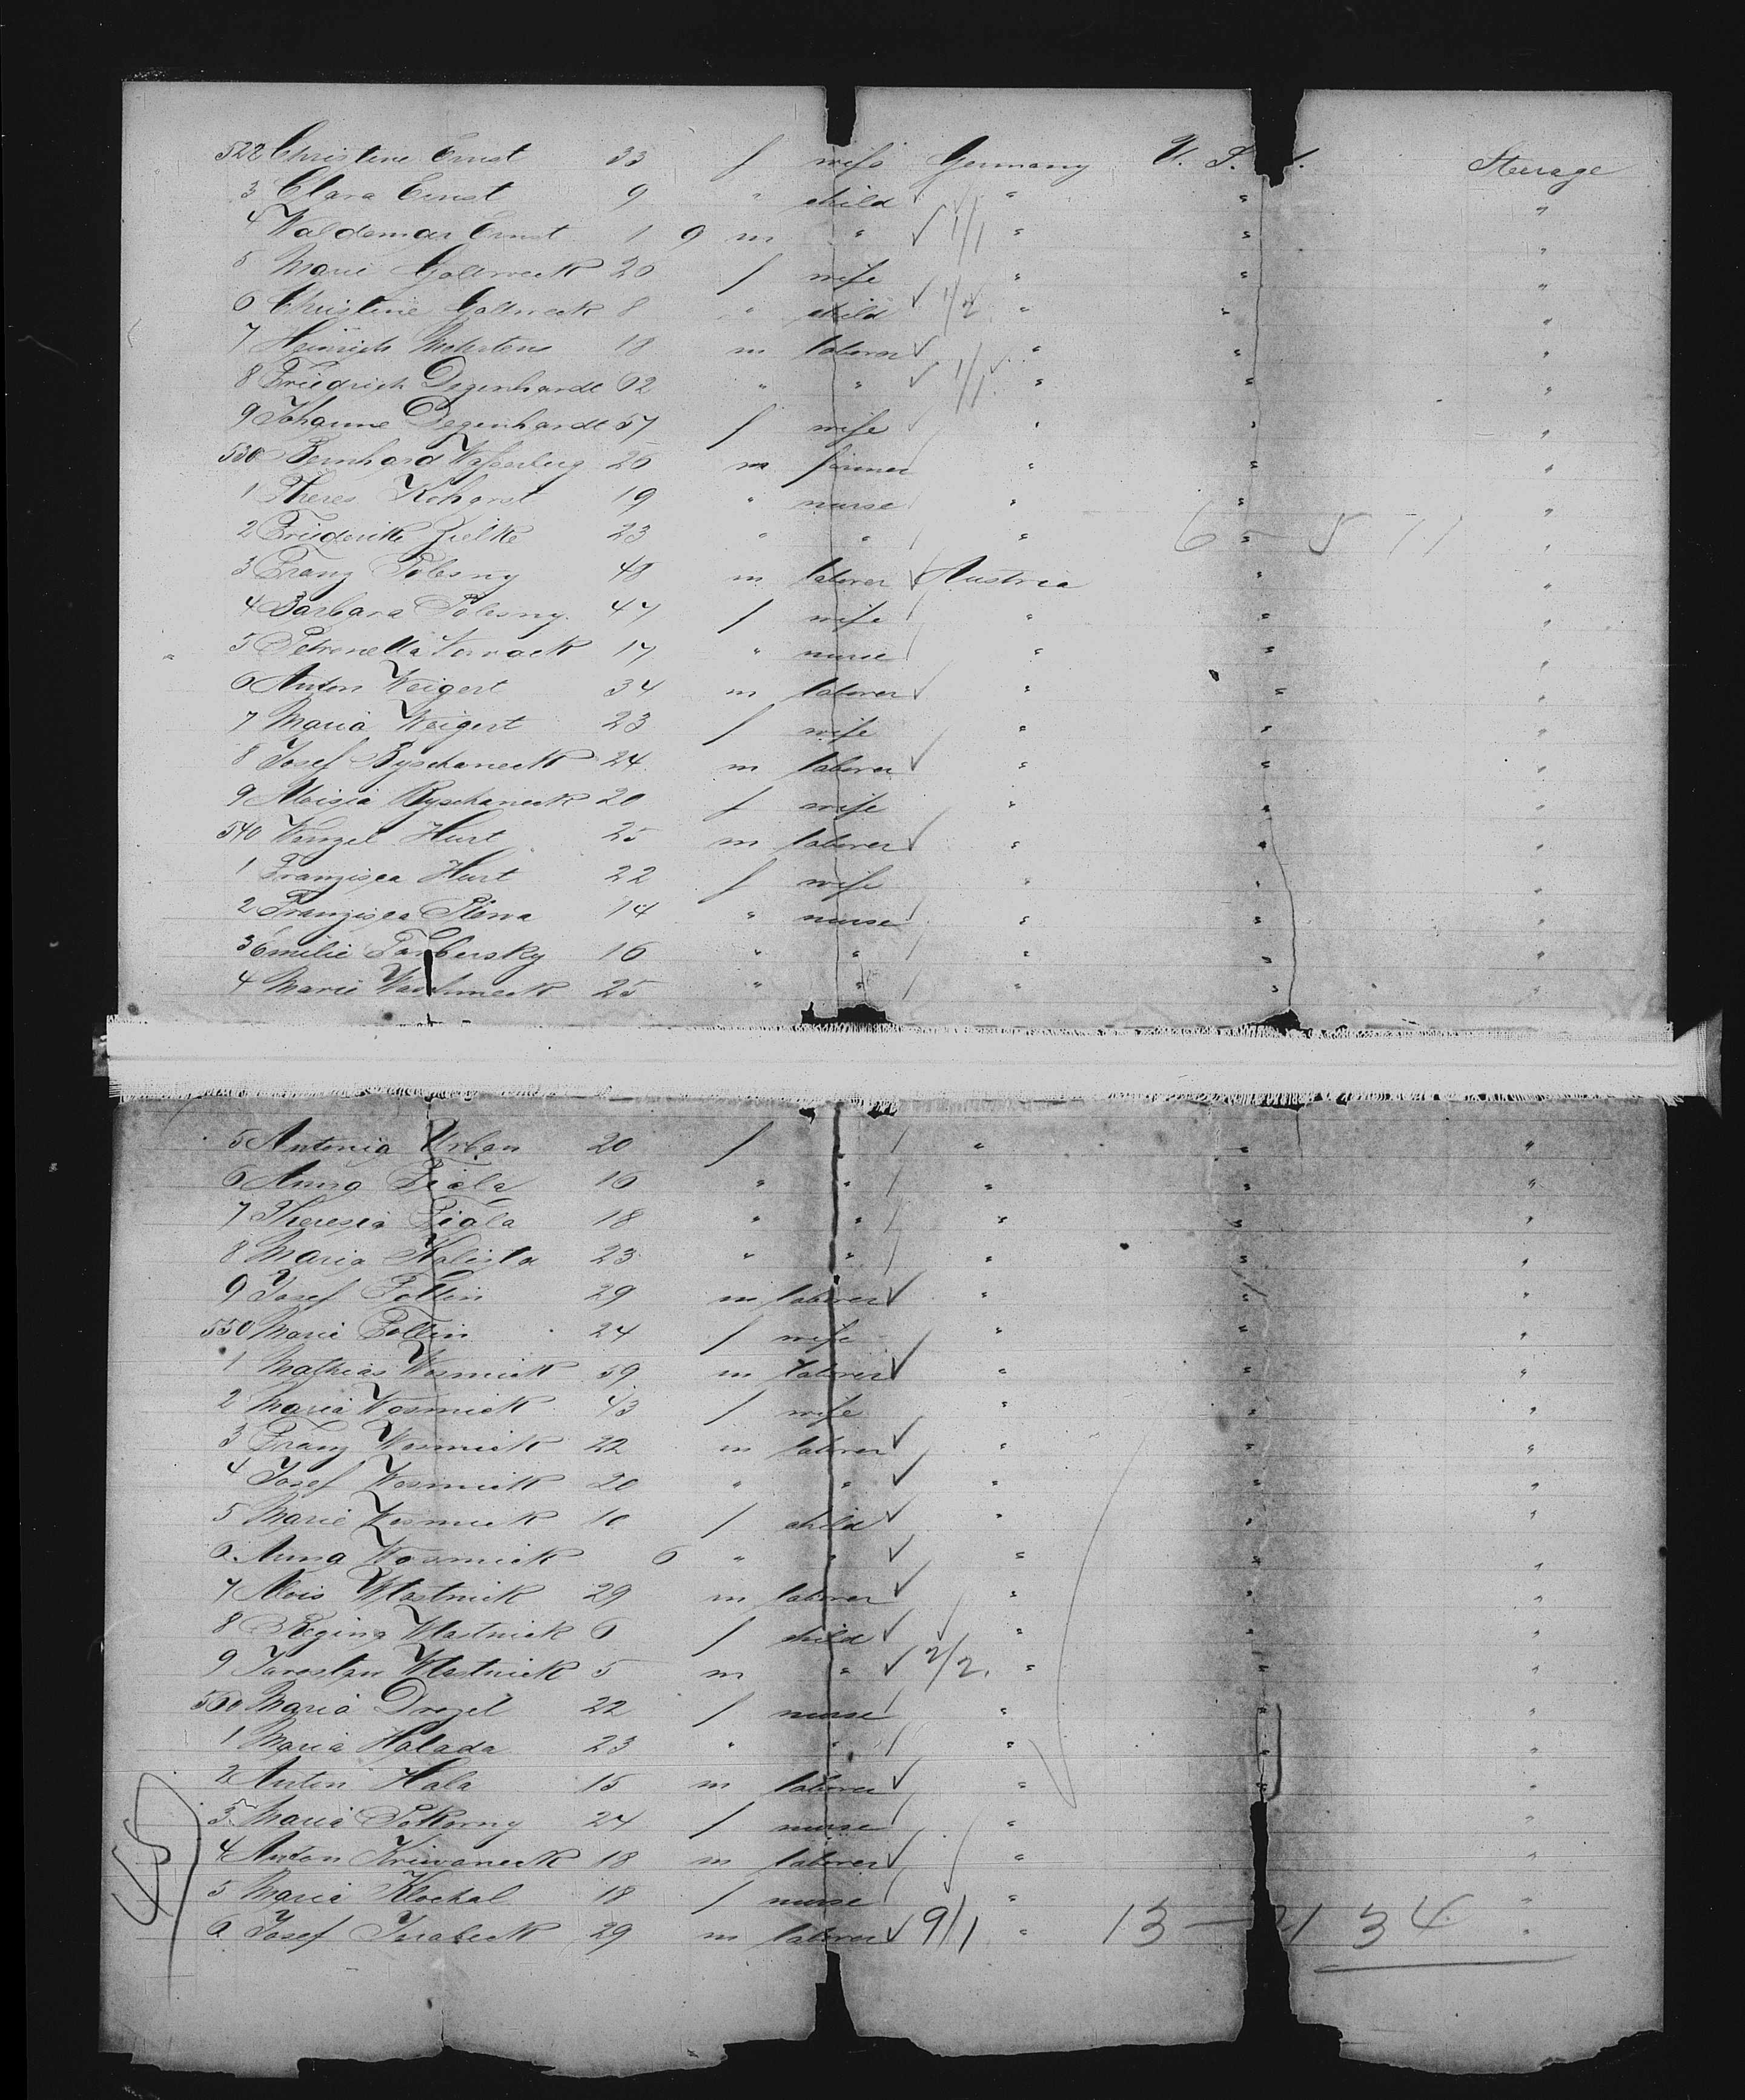 522 Christine Ernst 33 f wife Germany U. S. A. Steerage
3 Clara Ernst 9 " child " " "
4 Waldemar Ernst 1 9 m " 1/1 " " "
5 Marie Gollweck 26 f wife " " "
6 Christine Gollweck 8 " child 1/2 " " "
7 Heinrich Mahrtens 18 m laborer " " "
8 Friedrich Degenhardt 62 " " 1/1 " " "
9 Johanne Degenhardt 57 f wife " " "
530 Bernhard Wassenberg 26 m farmer " " "
1 Theres Kohorst 19 " nurse " " "
2 Friederike Zielke 23 " " " " " 6 - 5 11
3 Franz Polesny 48 m laborer Austria " "
4 Barbara Polesny 47 f wife " " "
5 Petronella 17 " nurse " " "
6 Anton Weigert 34 m laborer " " "
7 Maria Weigert 23 f wife " " "
8 Josef Ryschaneck 24 m laborer " " "
9 Aloisia Ryschaneck 20 f wife " " "
540 Wenzel Hurt 25 m laborer " " "
1 Franzisca Hurt 22 f wife " " "
2 Franzisca 14 " nurse " " "
3 Emilie 16 " " " " "
4 Marie 25 " " " " "
5 Antonia Urban 20 f " " " "
6 Anna Fiala 16 " " " " "
7 Theresia Fiala 18 " " " " "
8 Maria Kalista 23 " " " " "
9 Josef 29 m laborer " " "
550 Marie 24 f wife " " "
1 Mathias Wosmick 59 m laborer " " "
2 Maria Wosmick 43 f wife " " "
3 Franz Wosmick 22 m laborer " " "
4 Josef Wosmick 20 " " " " "
5 Marie Wosmick 10 f child " " "
6 Anna Wosmick 6 " " " " "
7 Alois Wlastnick 29 m laborer " " "
8 Regina Wlastnick 6 f child " " "
9 Jaroslav Wlastnick 5 m " 2/2. " " "
560 Maria Drozel 22 f nurse " " "
1 Maria Halada 23 " " " " "
2 Anton Hala 15 m laborer " " "
3 Maria Pokorny 24 f nurse " " "
4 Anton Kriwaneck 18 m laborer " " "
5 Maria Klockal 18 f nurse " " "
6 Josef Jerabeck 29 m laborer 9/1 " 13 - 21 34 "